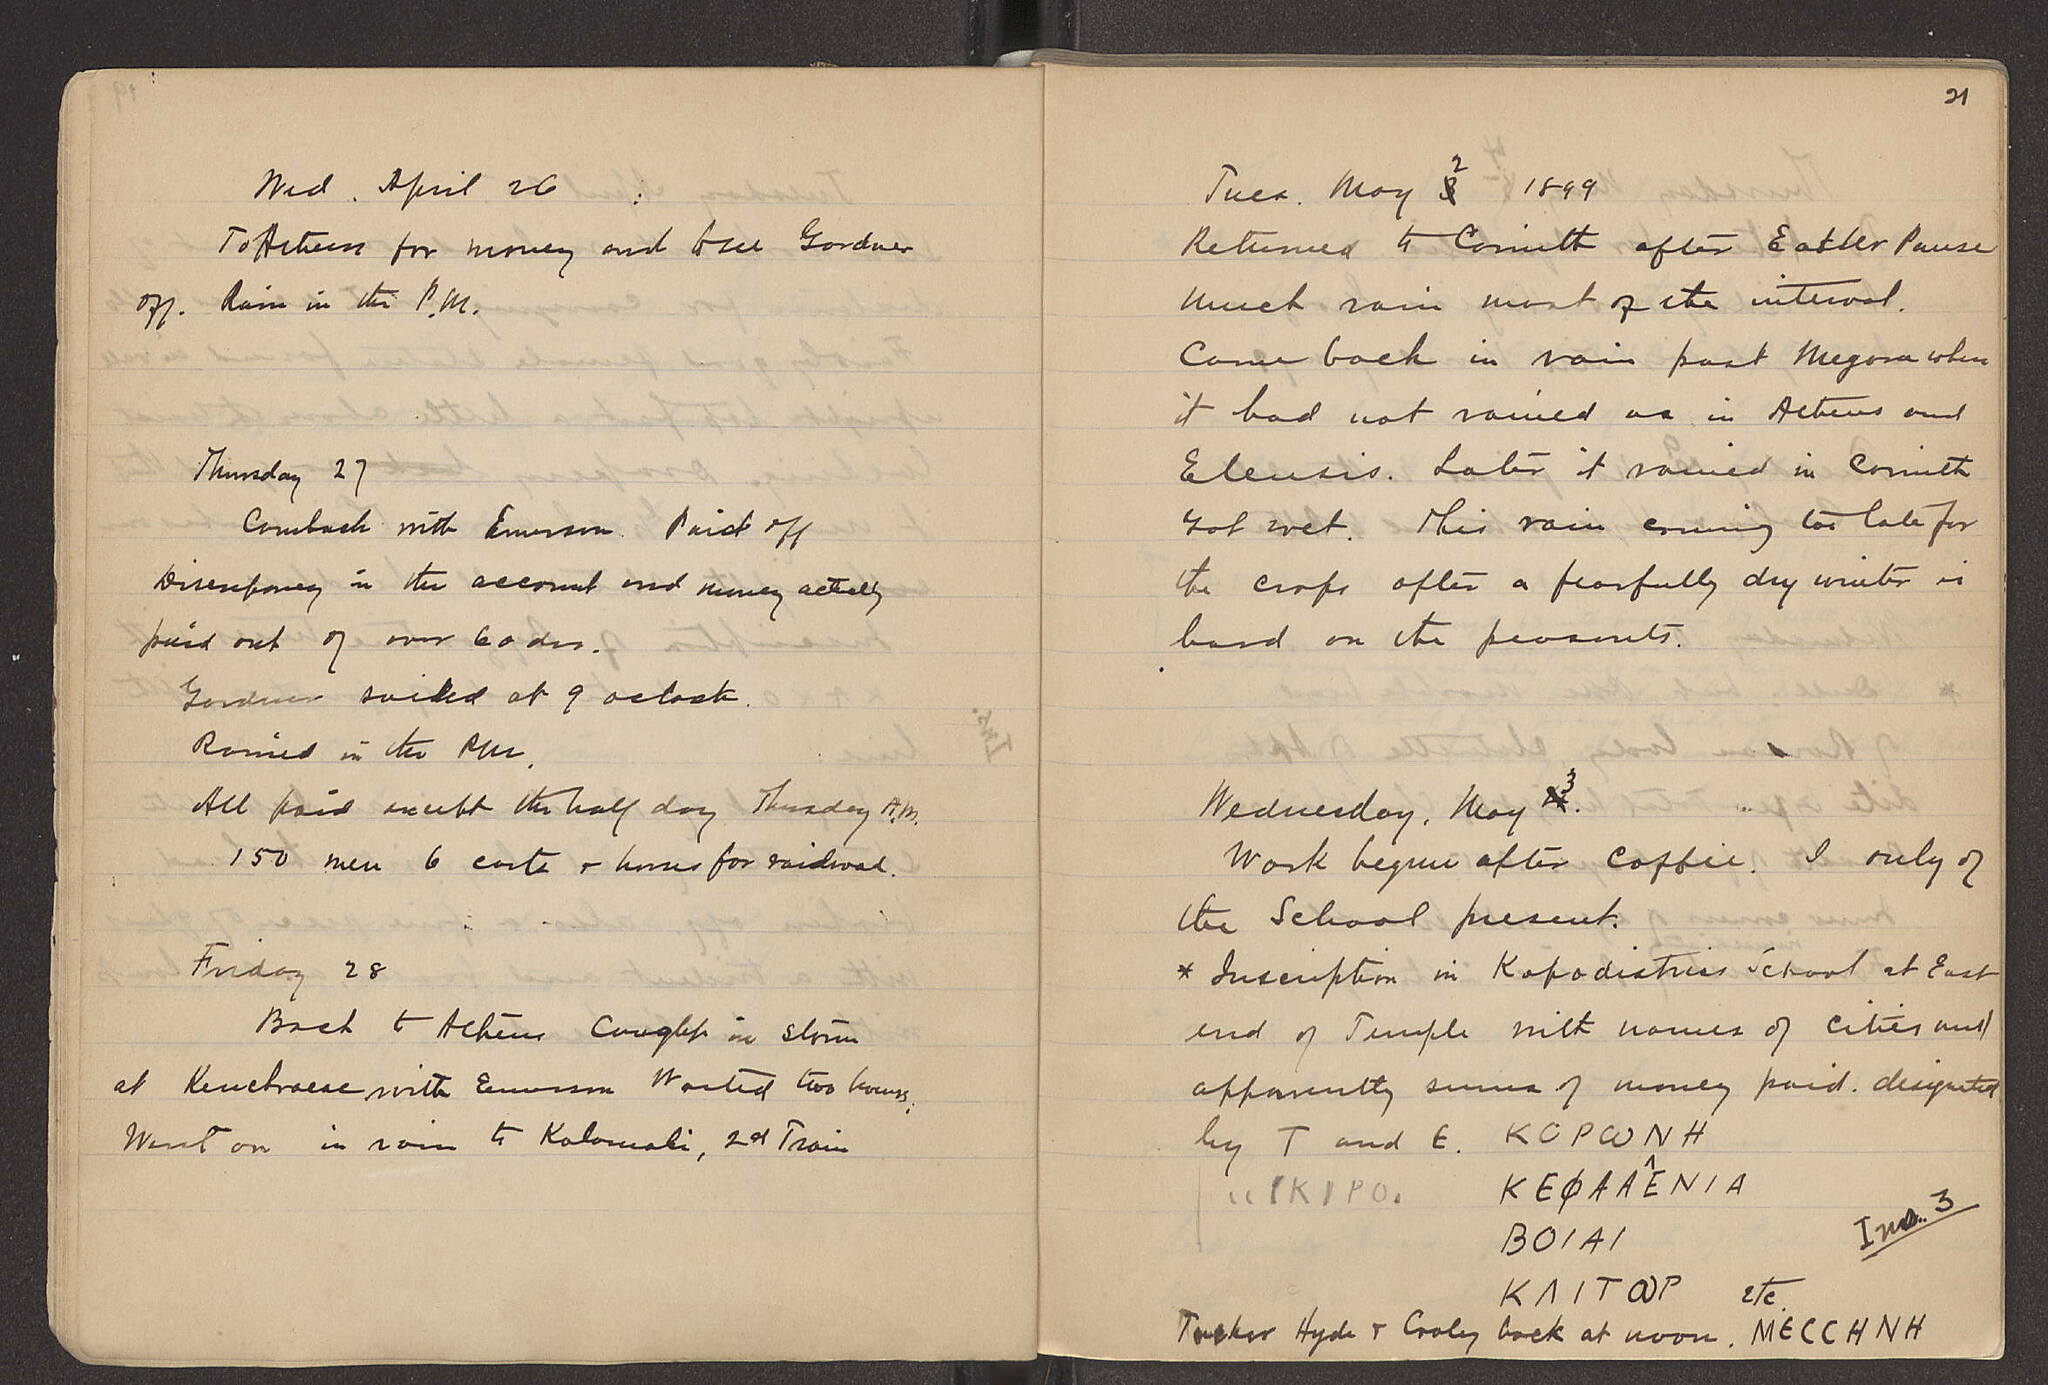 Wed. April 26
To Athens for money and to see Gardner
off. Rain in the P.M.
Thursday 27
Came back with Emerson. Paid off
Discrepancy in the account and money actually
paid out of over 60 drs.
Gardner sailed at 9 oclock.
Rained in the P.M.
All paid except the half day Thursday A.M.
150 men 6 carts + horses for railroad.
Friday 28
Back to Athens Caught in storm
at Kenchraeae with Emerson Waited two hours,
Went on in rain to Kalamaki, 2nd Train
21
Tues. May 2 1899
Returned to Corinth after Easter Pause
Much rain most of the interval.
Came back in rain past Megara where
it had not rained as in Athens and
Eleusis. Later it rained in Corinth
Got wet. This rain coming too late for
the crops after a fearfully dry winter is
hard on the peasants.
Wednesday, May 3.
Work begun after coffee. I only of
the School present.
* Inscription in Kapodistrias School at East
end of Temple with names of cities and
apparently sums of money paid. designated
by T and E. ΚΟΡωΝΗ
ΙΚΙΡΟ. ΚΕΦΑΛΛΕΝΙΑ
ΒΟΙΑΙ
Ins. 3
ΚΛΙΤωΡ etc.
Tucker Hyde + Craley back at noon. ΜΕCCΗΝΗ